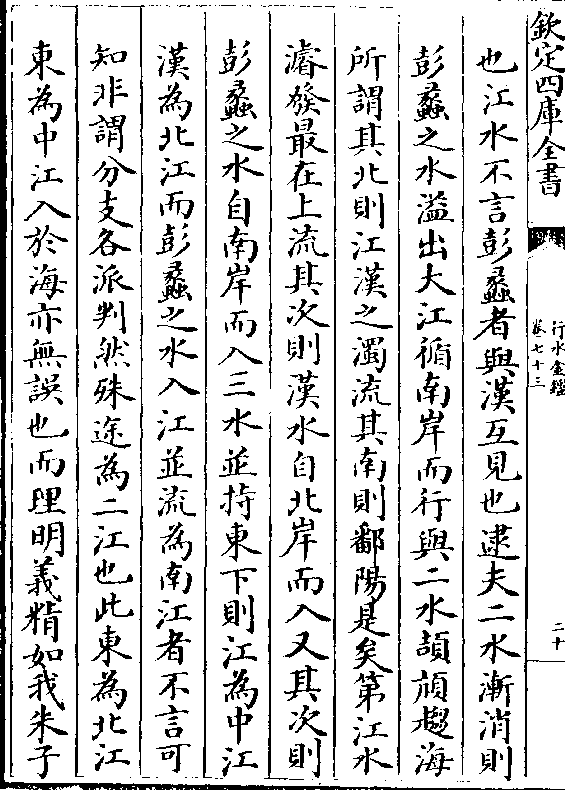 欽定四庫全書
行水金鑑
卷七十三
二十
也江水不言彭蠡者與漢互見也逮夫二水漸消則
彭蠡之水溢出大江循南岸而行與二水頡頏趨海
所謂其北則江漢之濁流其南則鄱陽是矣第江水
濬發最在上流其次則漢水自北岸而入又其次則
彭蠡之水自南岸而入三水並持東下則江為中江
漢為北江而彭蠡之水入江並流為南江者不言可
知非謂分支各派判然殊途為二江也此東為北江
東為中江入於海亦無誤也而理明義精如我朱子